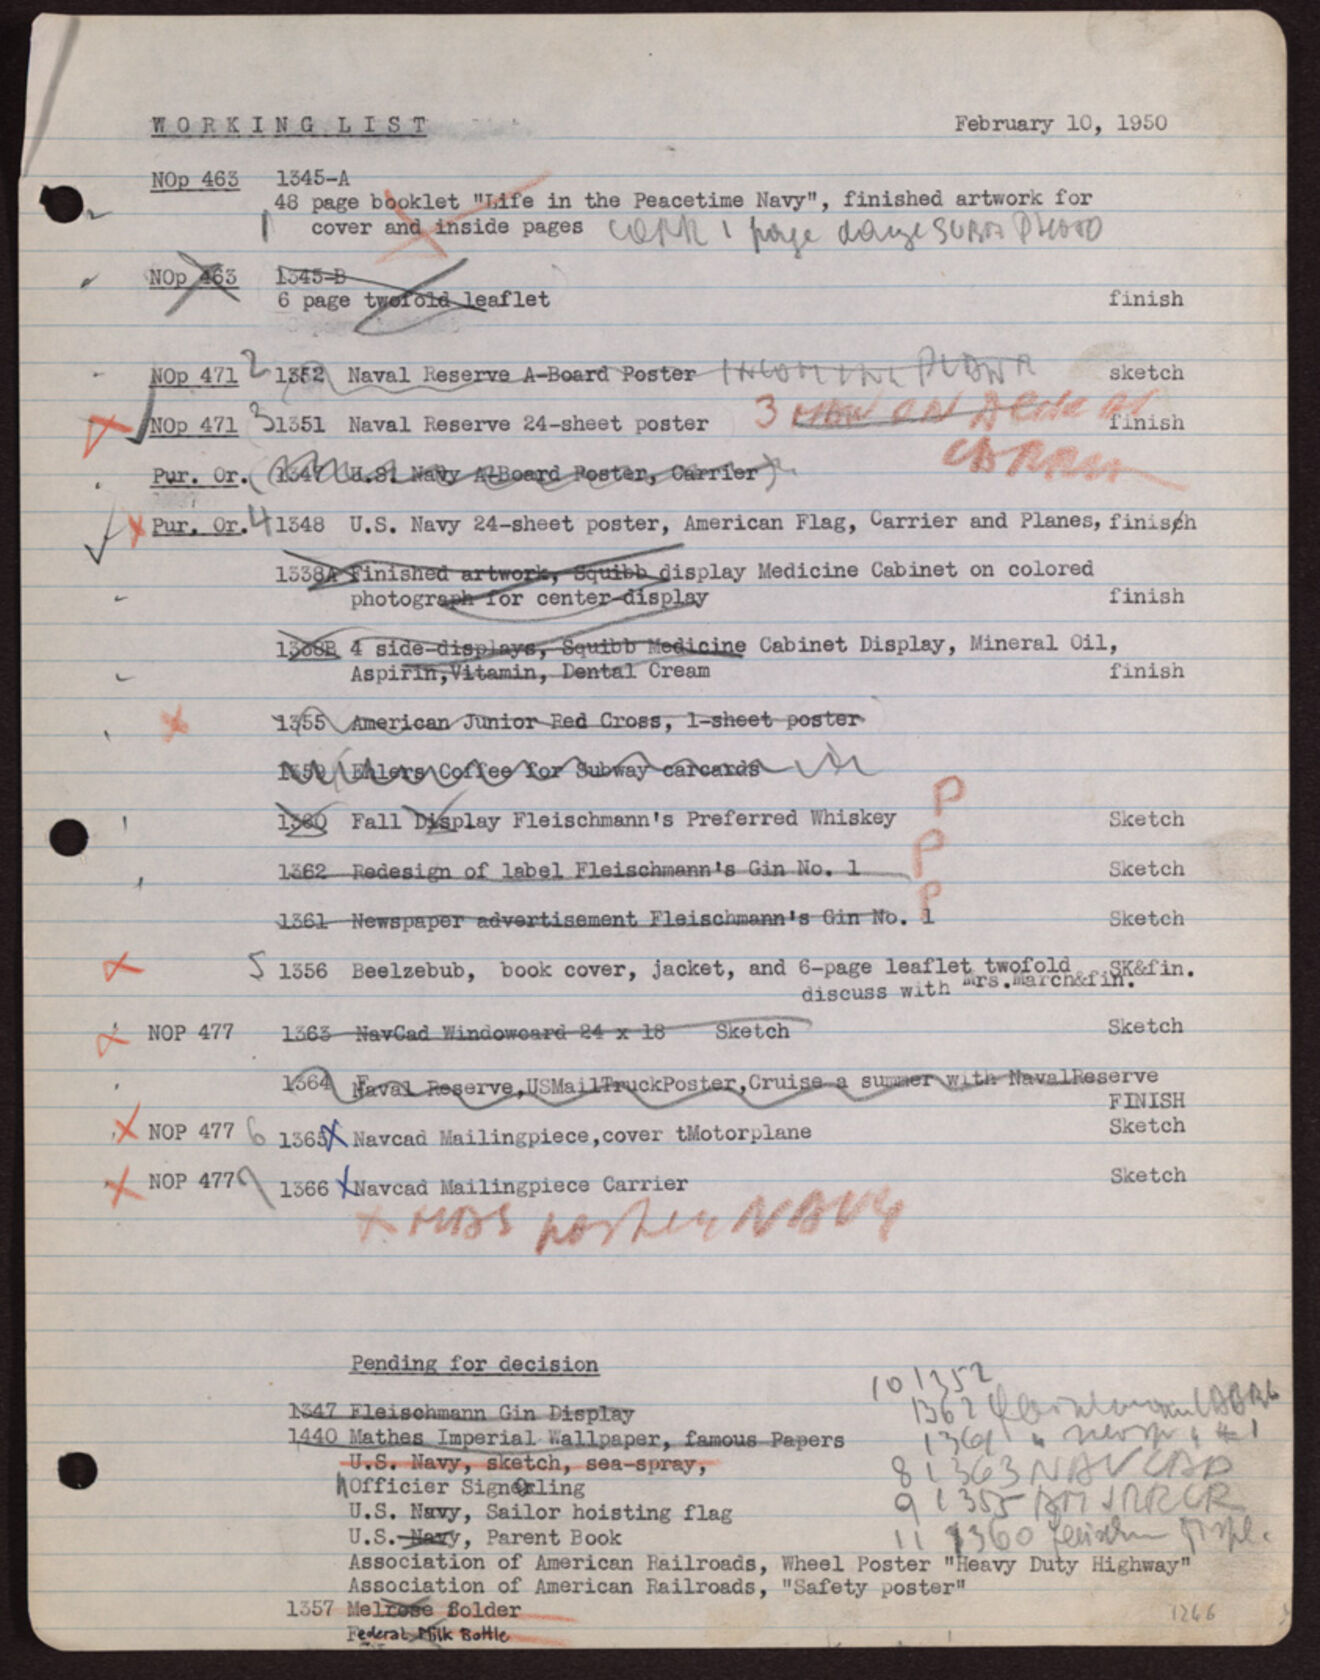 WORKING LIST February 10, 1950
NOp 463 1345-A
48 page booklet "Life in the Peacetime Navy", finished artwork for
1 cover and inside pages 1 page
NOp 463 1345-B
6 page twofold leaflet finish
NOp 471 2 1352 Naval Reserve A-Board Poster sketch
NOp 471 3 1351 Naval Reserve 24-sheet poster 3 finish
Pur. Or. 1347 U.S. Navy A-Board Poster, Carrier
Pur. Or. 4 1348 U.S. Navy 24-sheet poster, American Flag, Carrier and Planes, finisch
1338A Finished artwork, Squibb display Medicine Cabinet on colored
photograph for center-display finish
1338B 4 side-displays, Squibb Medicine Cabinet Display, Mineral Oil,
Aspirin,Vitamin, Dental Cream finish
1355 American Junior Red Cross, 1-sheet poster
1359 Ehlers Coffee for Subway carcards
P
1360 Fall Display Fleischmann's Preferred Whiskey Sketch
P
1362 Redesign of label Fleischmann's Gin No. 1 Sketch
P
1361 Newspaper advertisement Fleischmann's Gin No. 1 Sketch
5 1356 Beelzebub, book cover, jacket, and 6-page leaflet twofold SK&fin.
discuss with Mrs.March&fin.
NOP 477 1363 NavCad Windowcard 24 x 18 Sketch Sketch
1364 Naval Reserve,USMailTruckPoster,Cruise a summer with NavalReserve
FINISH
NOP 477 6 1365 X Navcad Mailingpiece,cover tMotorplane Sketch
NOP 477 1366 X Navcad Mailingpiece Carrier Sketch
X MAS poster NAVY
Pending for decision
10 1352
1347 Fleischmann Gin Display
1362 Fleischmann
1440 Mathes Imperial Wallpaper, famous Papers
1361 " newsp. " # 1
U.S. Navy, sketch, sea-spray,
8 1363 NAVCAD
Officier Signaling
9 1355
U.S. Navy, Sailor hoisting flag
U.S. Navy, Parent Book
11 1360
Association of American Railroads, Wheel Poster "Heavy Duty Highway"
Association of American Railroads, "Safety poster"
1357 Melrose Solder
1266
Federal Milk Bottle